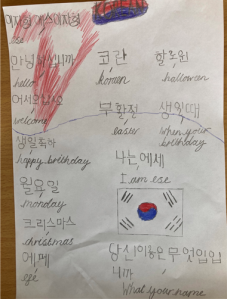 안녕하십니까 코란 할로윈
hello korean hallowen
어서오십시오 부활절 생일때
welcome easter when your birthday
생일축하
happy birthday
나는에세
I am ese
월요일
monday
크리스마스
christmas
에쩨
ege
당신이름은무엇입입
니까
What your name